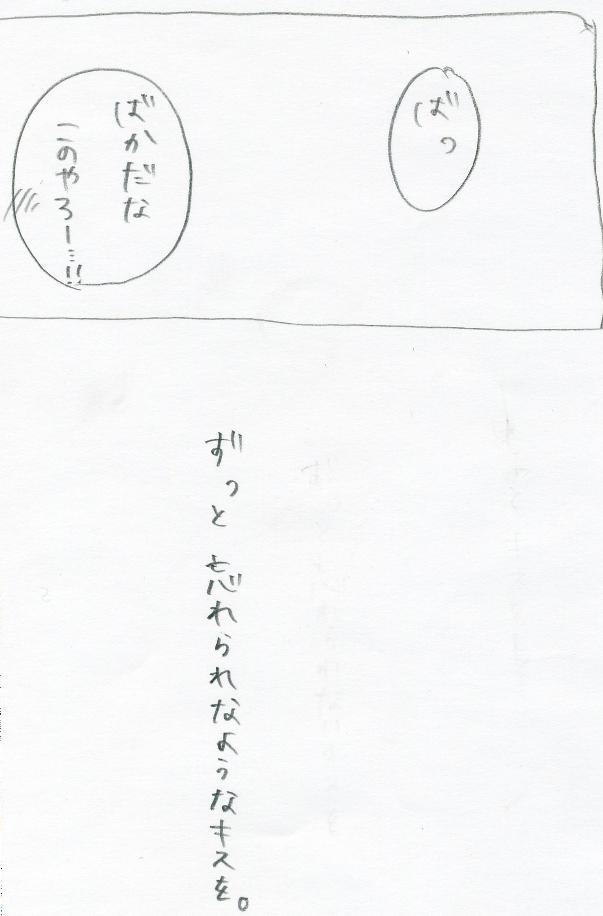 ばっ
ばかだな
このやろー…!!
ずっと忘れられなようなキスを。